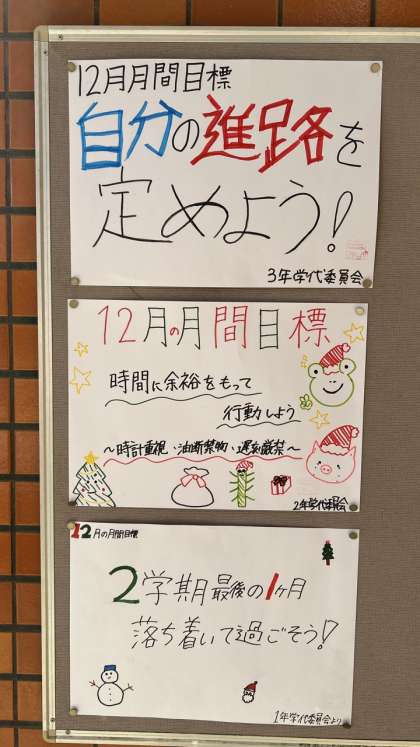 12月月間目標
自分の進路を
定めよう!
3年学代委員会
12月の月間目標
時間に余裕をもって
行動しよう
〜時計重視、油断禁物、遅刻厳禁〜
2年学代委員会
12月の月間目標
2学期最後の1ヶ月
落ち着いて過ごそう!
1年学代委員会より